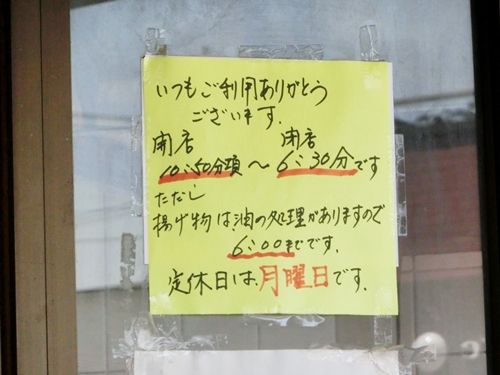 いつもご利用ありがとう
ございます.
開店 閉店
10:50分頃～6:30分です
ただし
揚げ物は油の処理がありますので
6:00までです.
定休日は、月曜日です.